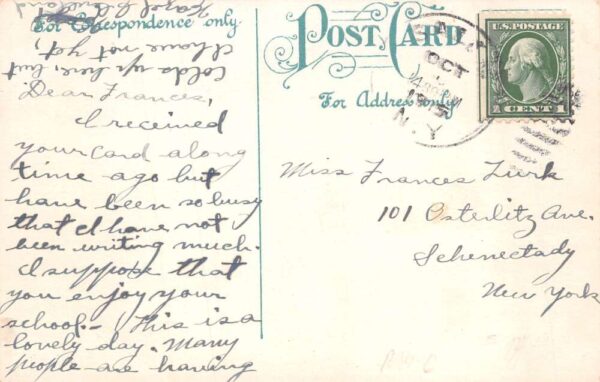 For Correspondence only.
Dear Frances,
I received
your card along
time ago but
have been so busy
that I have not
been writing much.
I suppose that
you enjoy your
school.- This is a
lovely day. Many
people are having
colds up here, but
I have not yet,
Hazel
POST CARD
For Address only.
OCT
N.Y.
U.S. POSTAGE
1 CENT 1
Miss Frances Turk
101 Osterlitz Ave.
Schenectady
New York